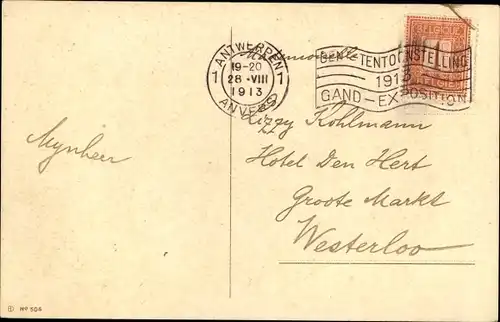 ANTWERPEN
1 19-20 1
28 VIII
1913
ANVERS
GENT-TENTOONSTELLING
1913
GAND-EXPOSITION
BELGIQUE
BELGIË
Mynheer
Lizzy Kohlmann
Hotel Den Hert
Groote Markt
Westerloo
No 504